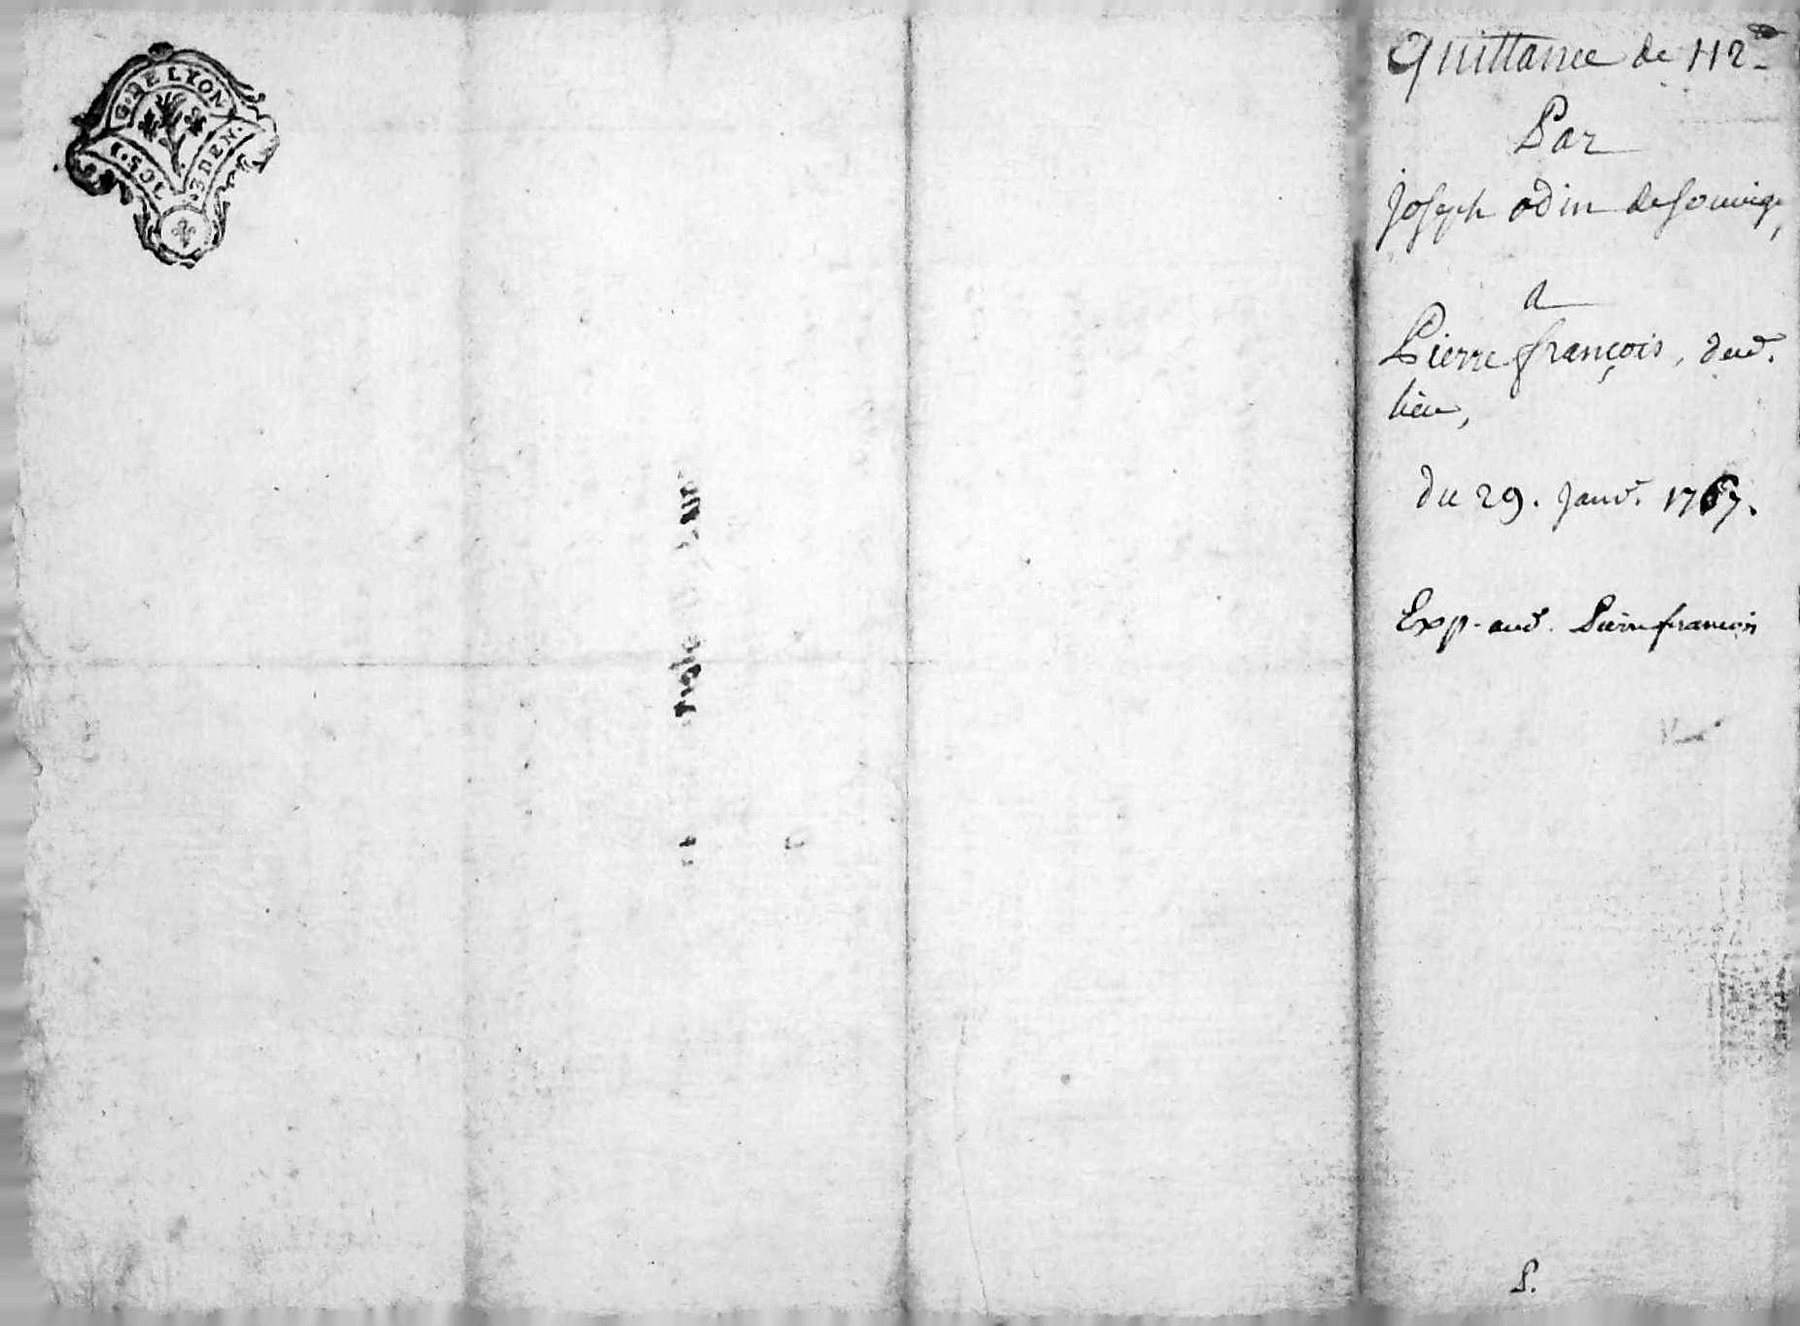 G. DE LYON
1. SOL
3 DEN.
Quittance de 112
Par
joseph odin de Souvige,
a
Pierre françois, dud.
lieu,
du 29. janv. 1767.
Exp. aud. Pierre francois
P.